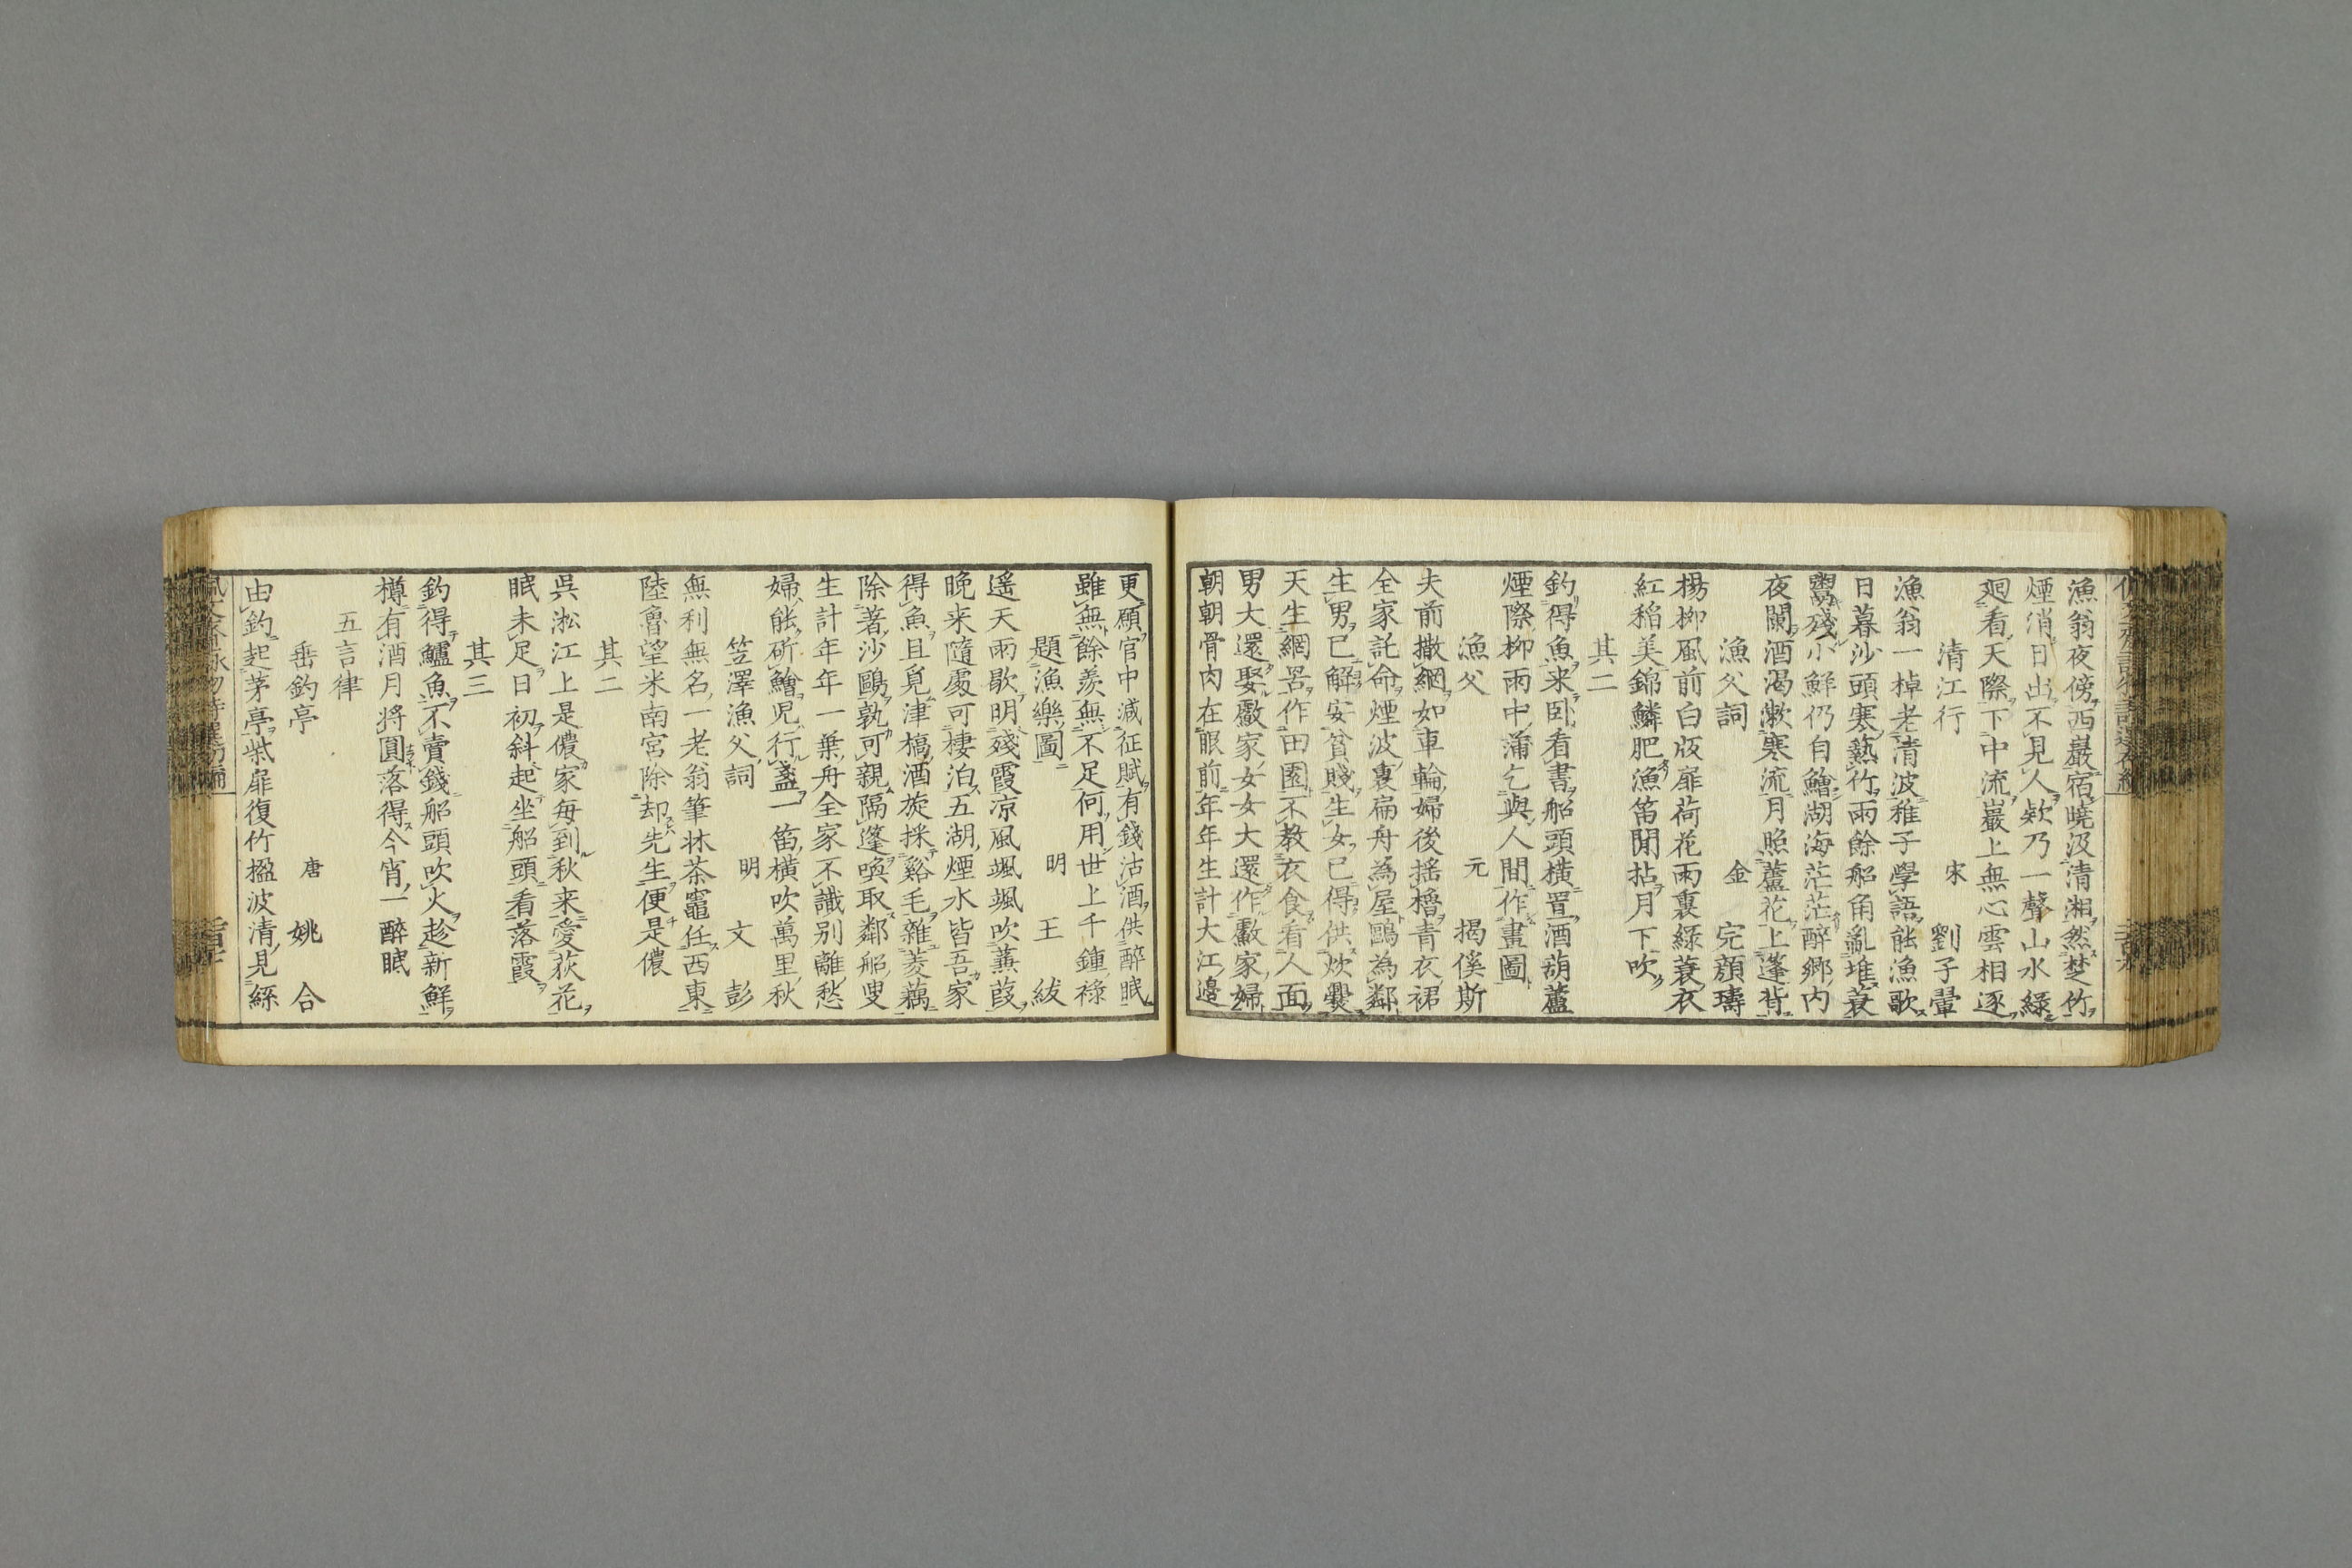 漁翁夜傍西巖宿曉汲清湘然楚竹
煙消日出不見人欸乃一聲山水緑
廻看天際下中流巖上無心雲相逐
清江行 宋 劉子翬
漁翁一棹老清波稚子學語能漁歌
日暮沙頭寒熱竹雨餘船角亂堆蓑
鬻殘小鮮仍自鱠湖海茫茫醉郷内
夜闌酒渇漱寒流月照蘆花上蓬背
漁父詞 金 完顔璹
楊柳風前白版扉荷花雨裏緑蓑衣
紅稲美錦鱗肥漁笛閒拈月下吹
其二
釣得魚来卧看書船頭横置酒葫蘆
煙際柳雨中蒲乞與人間作畫圖
漁父 元 揭傒斯
夫前撒網如車輪婦後揺櫓青衣裙
全家託命煙波裏扁舟為屋鷗為鄰
生男已解安貧賤生女已得供炊爨
天生網罟作田園不教衣食看人面
男大還娶䱷家女女大還作䱷家婦
朝朝骨肉在眼前年年生計大江邊
更願官中減征賦有錢沽酒供醉眠
雖無餘羨無不足何用世上千鍾禄
題漁樂圖 明 王 紱
遥天雨歇明殘霞凉風颯颯吹蒹葭
晩来隨處可棲泊五湖煙水皆吾家
得魚且覓津橋酒旋採谿毛雜菱藕
除著沙鷗孰可親隔篷喚取鄰船叟
生計年年一葉舟全家不識别離愁
婦能斫鱠児行盞一笛横吹萬里秋
笠澤漁父詞 明 文 彭
無利無名一老翁筆牀茶竈任西東
陸魯望米南宮除却先生便是儂
其二
呉淞江上是儂家毎到秋来愛荻花
眠未足日初斜起坐船頭看落霞
其三
釣得鱸魚不賣錢船頭吹火趁新鮮
樽有酒月將圓落得今宵一醉眠
五言律
垂釣亭 唐 姚 合
由釣起茅亭柴扉復竹楹波清見絲